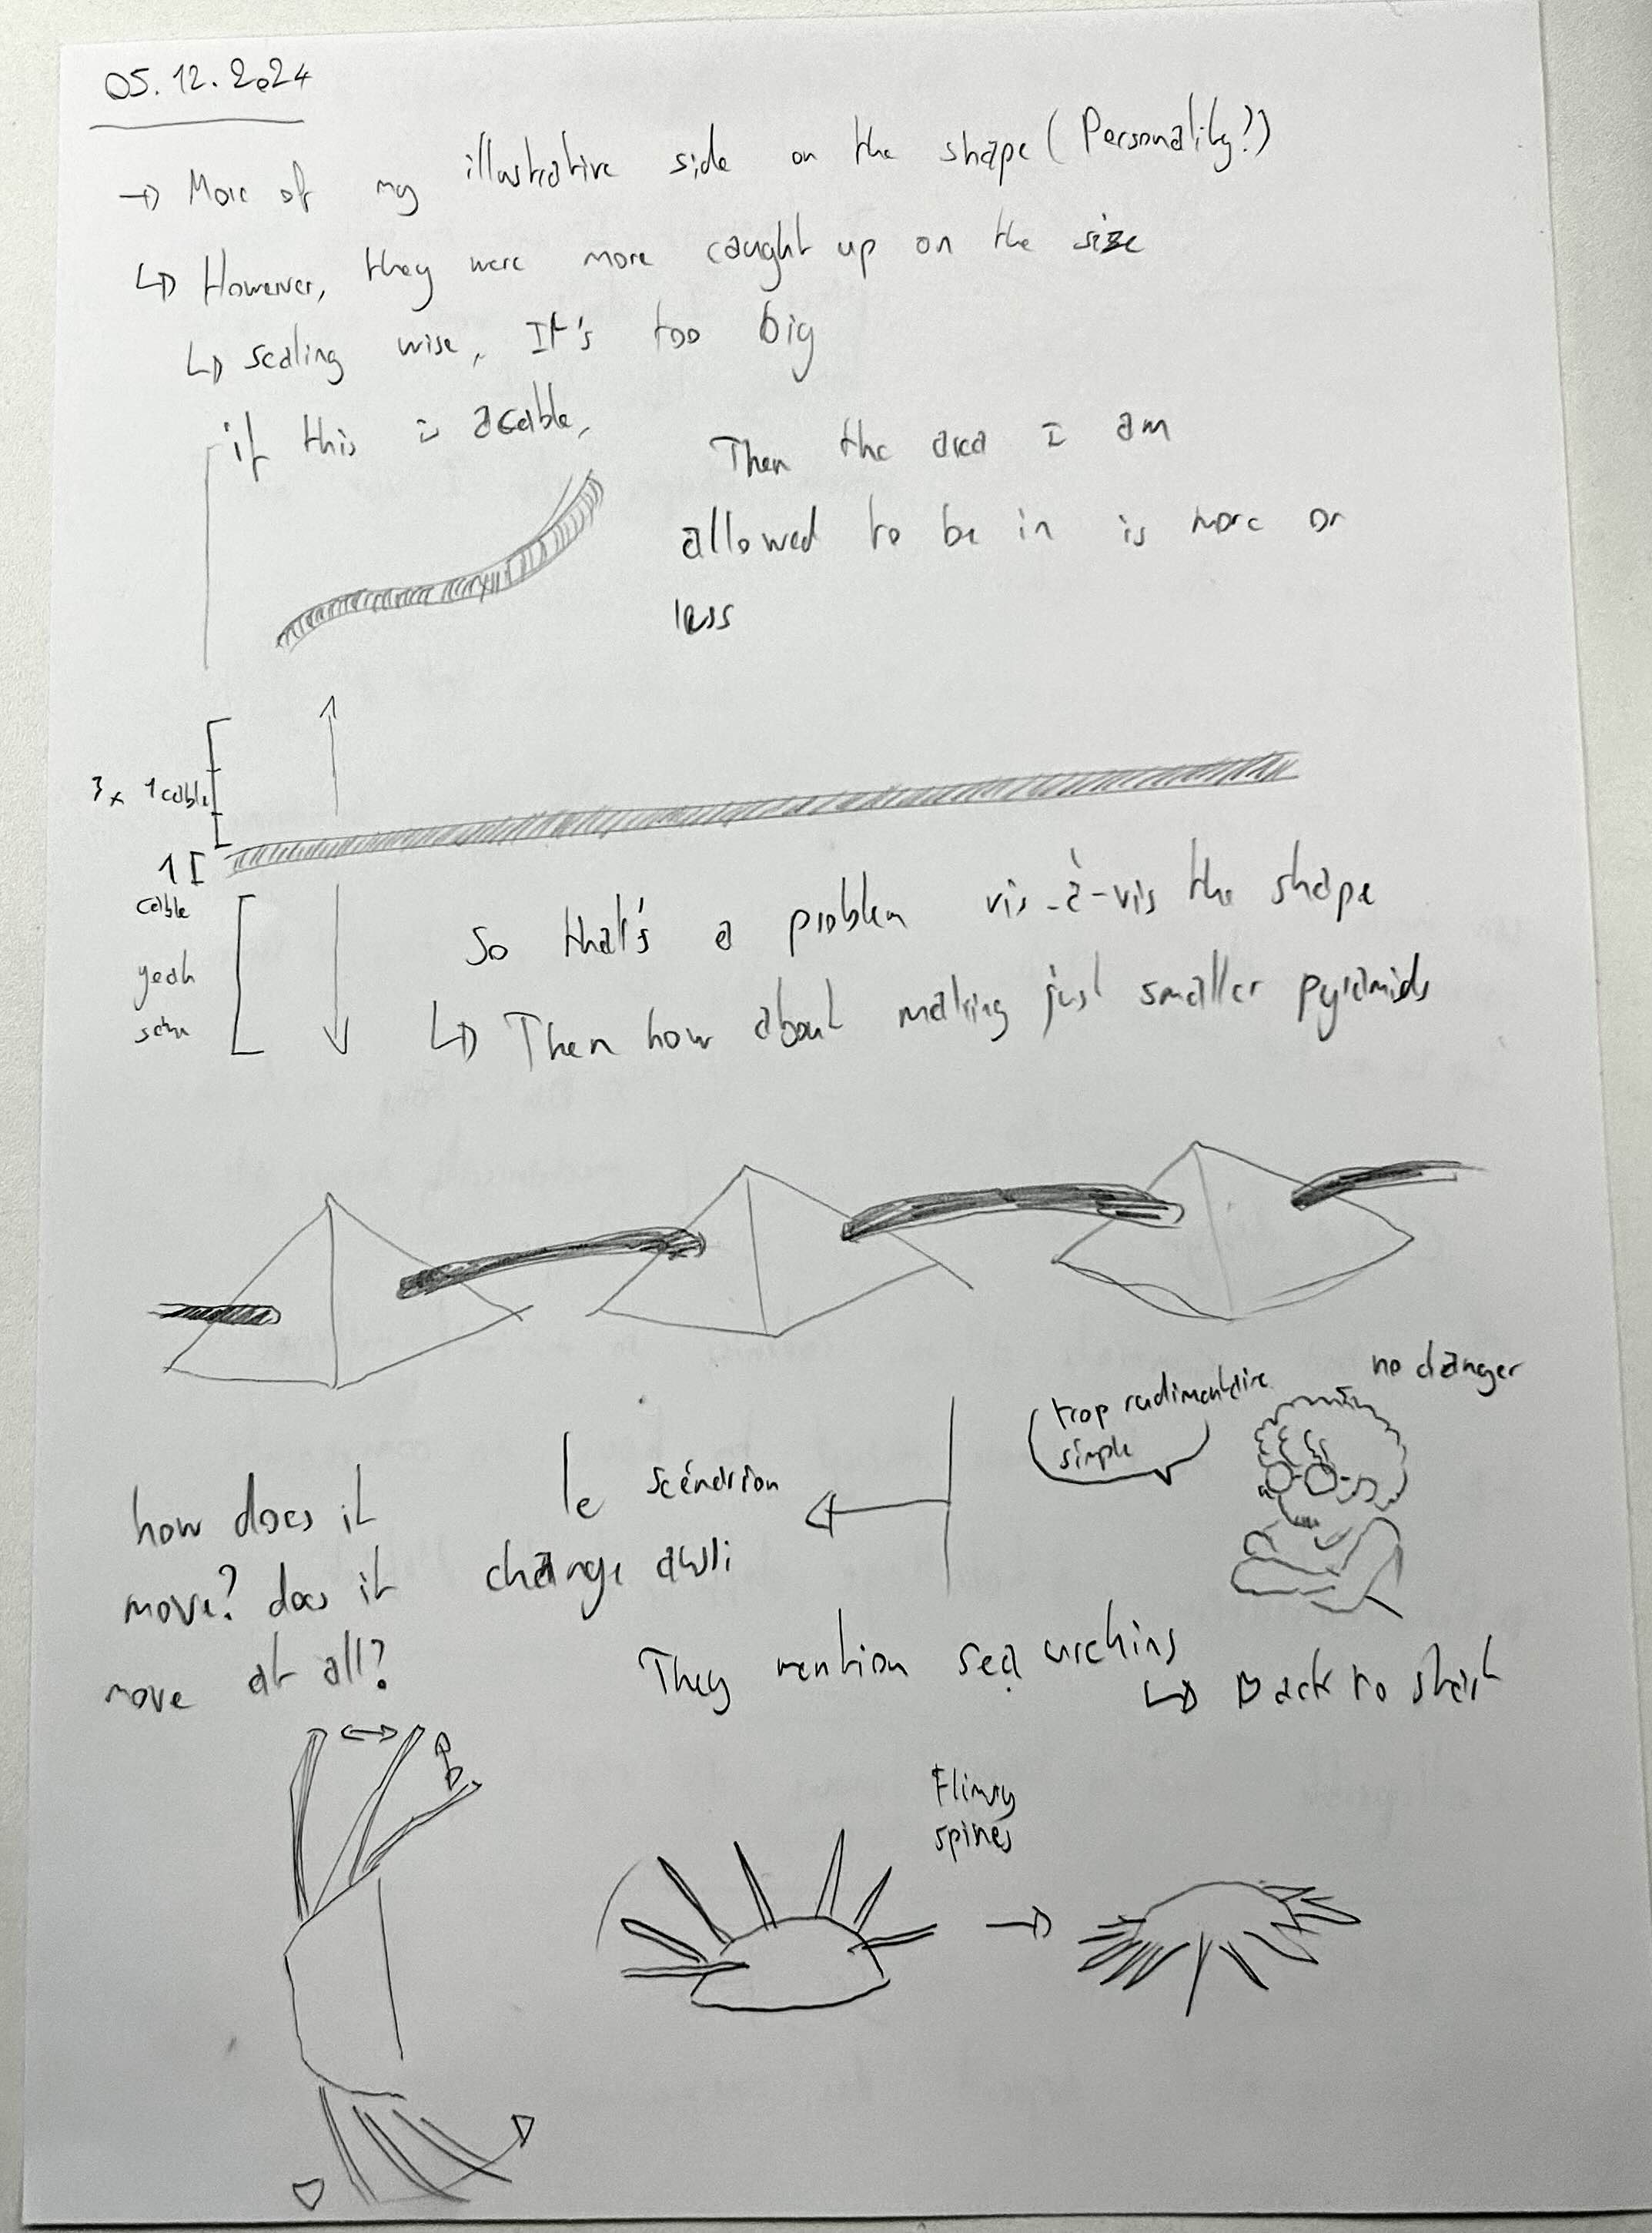 05.12.2024
→ More of my illustrative side on the shape (Personality?)
↳ However, they were more caught up on the size
↳ scaling wise, It's too big
if this is a cable,
Then the area I am
allowed to be in is more or
less
3x 1 cable
1
cable
yeah
same
So that's a problem vis-à-vis the shape
↳ Then how about making just smaller pyramids
no danger
trop rudimentaire
simple
how does it
move? does it
move at all?
le scénarion
change aussi
They mention sea urchins
↳ Back to start
Flimsy
spines